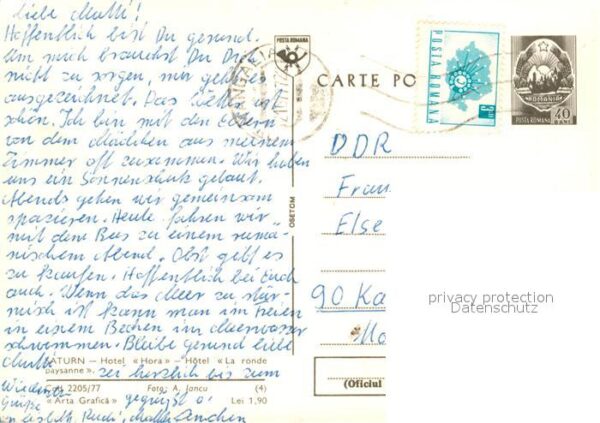 Liebe Mutti!
Hoffentlich bist Du gesund.
Um mich brauchst Du Dich
nicht zu sorgen, mir geht es
ausgezeichnet. Das Wetter ist
schön. Ich bin mit den Eltern
von dem Mädchen aus meinem
Zimmer oft zusammen. Wir haben
uns ein Sonnenschutz gebaut.
Abends gehen wir gemeinsam
spazieren. Heute fahren wir
mit dem Bus zu einem rumä-
nischem Abend. Obst gibt es
zu kaufen. Hoffentlich bei Euch
auch. Wenn das Meer zu stür-
misch ist kann man im Freien
in einem Becken im Meerwasser
schwimmen. Bleibe gesund liebe
Mutti
sei herzlich bis zum
gegrüßt
Grüße
SATURN – Hotel «Hora» – Hôtel «La ronde
paysanne».
2205/77 Foto: A. Iancu (4)
«Arta Grafică» Lei 1,90
OSETCM
POSTA ROMANA
CARTE PO
POSTA ROMANA
ROMANIA
POSTA ROMANA 40
DDR
Frau
Else
90 Ka
(Oficiul
privacy protection
Datenschutz